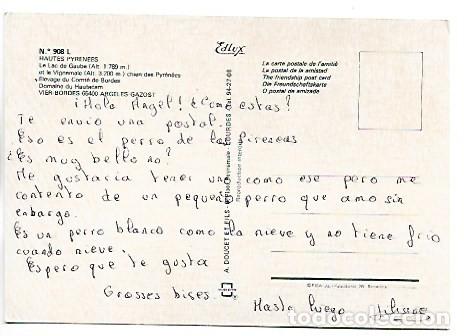 N.º 908 L
HAUTES PYRENEES
Le Lac de Gaube (Alt. 1 789 m.)
et le Vignemale (Alt. 3.200 m.) chien des Pyrénées
Elevage du Comté de Bordes
Domaine du Hautacam
VIER-BORDES 65400 ARGELES-GAZOST
Edlyx
La carte postale de l'amitié
La postal de la amistad
The friendship post card
Die Freundschaftskarte
O postal de amizade
¡Hola Angel! ¿Como estas?
Te envio una postal.
Eso es el perro de los Pireneas
¿Es muy bello no?
Me gustaria tener un como ese pero me
contento de un pequeño perro que amo sin
enbargo.
Es un perro blanco como la nieve y no tiene frio
cuando nieve.
Espero que te gusta
Grosses bises.
Hasta luego
A. DOUCET ET FILS LOURDES tel. 94-27-08
todocoleccion